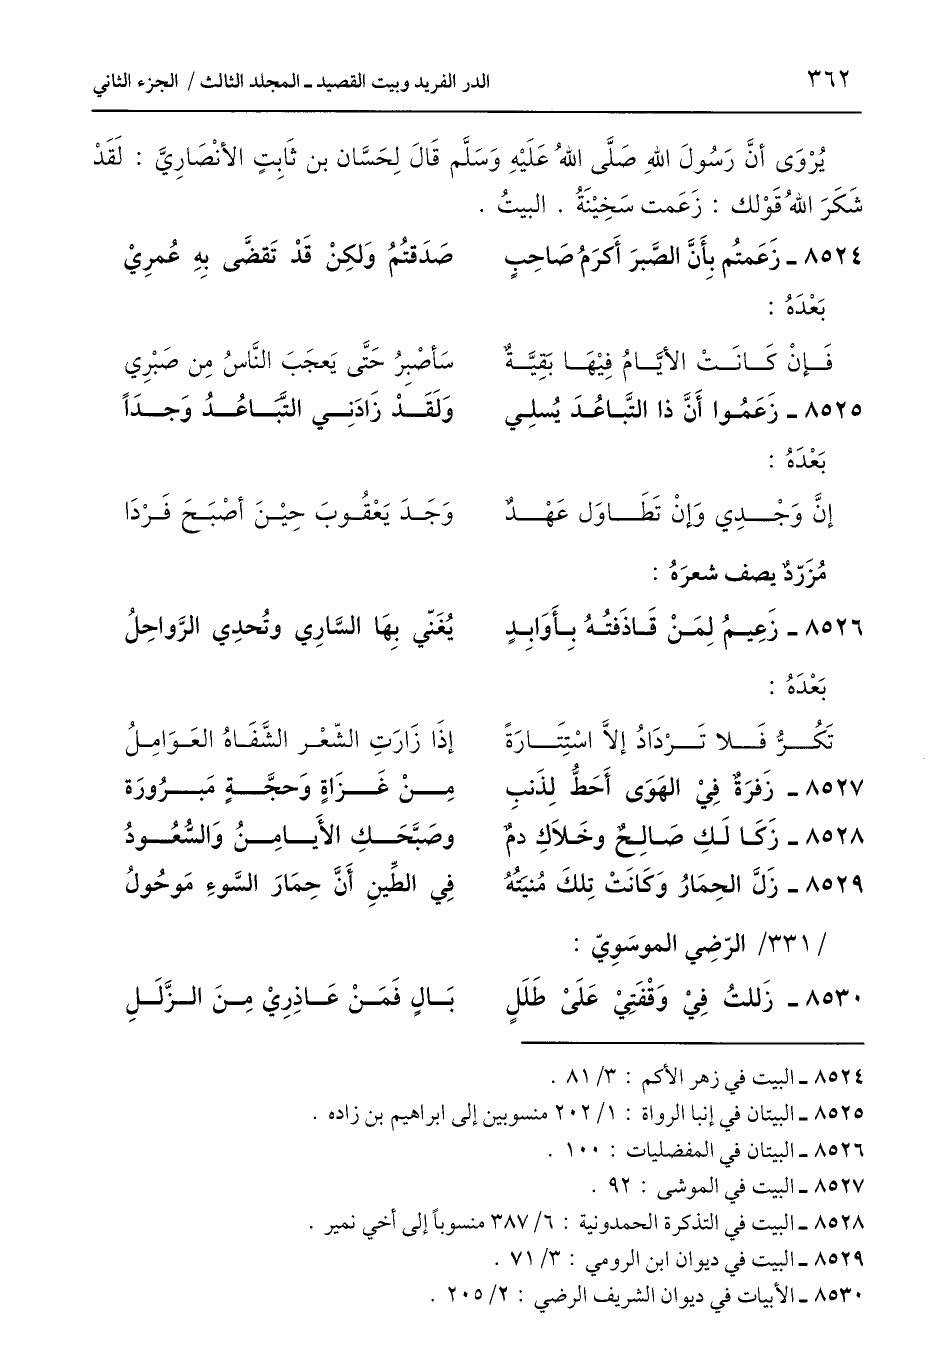 ٣٦٢ الدر الفريد وبيت القصيد ـ المجلد الثالث / الجزء الثاني
يُرْوَى أنَّ رَسُولَ اللهِ صَلَّى اللهُ عَلَيْهِ وَسَلَّم قَالَ لِحَسَّان بن ثَابِتٍ الأنْصَارِيَّ : لَقَدْ
شَكَرَ اللهُ قَوْلك : زَعَمت سَخِيْنَةُ . البيتُ .
٨٥٢٤ ـ زَعَمتُم بِأَنَّ الصَّبرَ أَكرَمُ صَاحِبٍ صَدَقتُمُ وَلكِنْ قَدْ تَقضَّى بِهِ عُمرِيْ
بَعْدَهُ :
فَإنْ كَانَتْ الأيَّامُ فِيْهَا بَقِيَّةٌ سَأصْبِرُ حَتَّى يَعجَبَ النَّاسُ مِن صَبْرِي
٨٥٢٥ ـ زَعَمُوا أنَّ ذا التَّبَاعُدَ يُسلِي وَلَقَدْ زَادَنِي التَّبَاعُدُ وَجَداً
بَعْدَهُ :
إنَّ وَجْدِي وَإنْ تَطَاوَل عَهْدٌ وَجَدَ يَعْقُوبَ حِيْنَ أصْبَحَ فَرْدَا
مُزَرّدٌ يصف شعرَهُ :
٨٥٢٦ ـ زَعِيمُ لِمَنْ قَاذَفتُهُ بِأَوَابِدٍ يُغَنّي بِهَا السَّارِي وتُحدِي الرَّواحِلُ
بَعْدَهُ :
تَكُرُّ فَلا تَرْدَادُ إلاَّ اسْتِتَارَةً إذَا زَارَتِ الشّعْر الشَّفَاهُ العَوَامِلُ
٨٥٢٧ ـ زَفرَةٌ فِيْ الهَوَى أَحَطُّ لِذَنبِ مِنْ غَزَاةٍ وَحجَّةٍ مَبرُورَة
٨٥٢٨ ـ زَكَا لَكِ صَالِحٌ وخَلاَكِ دمٌ وصَبَّحَكِ الأَيامِنُ وَالسُّعُودُ
٨٥٢٩ ـ زَلَّ الحِمَارُ وَكَانَتْ تِلكَ مُنيَتُهُ فِي الطِّينِ أنَّ حِمَارَ السَّوءِ مَوحُولُ
/ ٣٣١/ الرّضِي الموسَوِيّ :
٨٥٣٠ ـ زَللتُ فِيْ وَقْفَتِيْ عَلَىْ طَلَلٍ بَالٍ فَمَنْ عَاذِرِيْ مِنَ الزَّلَلِ
٨٥٢٤ ـ البيت في زهر الأكم : ٣/ ٨١ .
٨٥٢٥ ـ البيتان في إنبا الرواة : ١/ ٢٠٢ منسوبين إلى ابراهيم بن زاده .
٨٥٢٦ ـ البيتان في المفضليات : ١٠٠ .
٨٥٢٧ ـ البيت في الموشى : ٩٢ .
٨٥٢٨ ـ البيت في التذكرة الحمدونية : ٦/ ٣٨٧ منسوباً إلى أخي نمير .
٨٥٢٩ ـ البيت في ديوان ابن الرومي : ٣/ ٧١ .
٨٥٣٠ ـ الأبيات في ديوان الشريف الرضي : ٢/ ٢٠٥ .